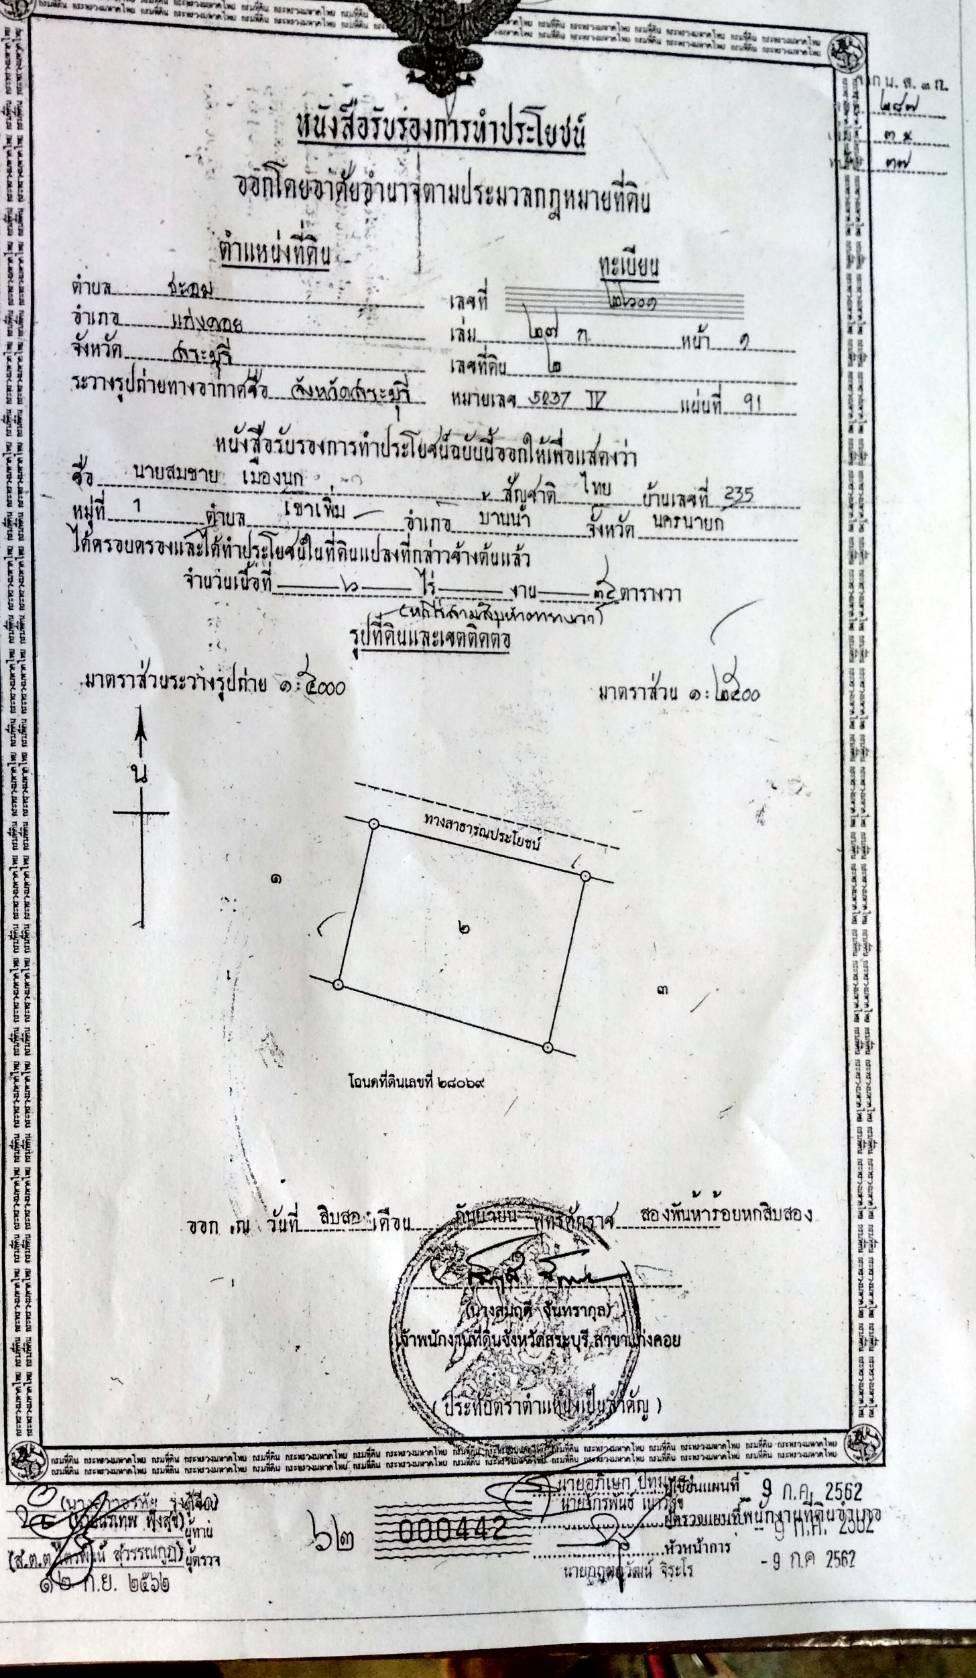 จาก น.ส. ๓ ก.
๒๘๗
๓๗
หนังสือรับรองการทำประโยชน์
ออกโดยอาศัยอำนาจตามประมวลกฎหมายที่ดิน
ตำแหน่งที่ดิน ทะเบียน
ตำบล ชะอม เลขที่
อำเภอ แก่งคอย เล่ม ๒๗ ก. หน้า ๑
จังหวัด สระบุรี เลขที่ดิน ๒
ระวางรูปถ่ายทางอากาศชื่อ จังหวัดสระบุรี หมายเลข 5237 IV แผ่นที่ 91
หนังสือรับรองการทำประโยชน์ฉบับนี้ออกให้เพื่อแสดงว่า
ชื่อ นายสมชาย เมืองนก สัญชาติ ไทย บ้านเลขที่ 235
หมู่ที่ 1 ตำบล เขาเพิ่ม อำเภอ บ้านนา จังหวัด นครนายก
ได้ครอบครองและได้ทำประโยชน์ในที่ดินแปลงที่กล่าวข้างต้นแล้ว
จำนวนเนื้อที่ ๖ ไร่ งาน ๓๕ ตารางวา
(หกไร่สามสิบห้าตารางวา)
รูปที่ดินและเขตติดต่อ
มาตราส่วนระวางรูปถ่าย ๑:๕๐๐๐ มาตราส่วน ๑:๒๕๐๐
น
ทางสาธารณประโยชน์
๑
๒
๓
โฉนดที่ดินเลขที่ ๒๘๐๖๙
ออก ณ วันที่ สิบสอง เดือน กันยายน พุทธศักราช สองพันห้าร้อยหกสิบสอง
(นางสมฤดี จันทรากุล)
เจ้าพนักงานที่ดินจังหวัดสระบุรี สาขาแก่งคอย
(ประทับตราตำแหน่งเป็นสำคัญ)
ผู้เขียนแผนที่ 9 ก.ค. 2562
ผู้ทาน ๖๒ 000442 ผู้ตรวจแผนที่ - 9 ก.ค. 2562
ผู้ตรวจ หัวหน้าการ - 9 ก.ค 2562
๑๒ ก.ย. ๒๕๖๒